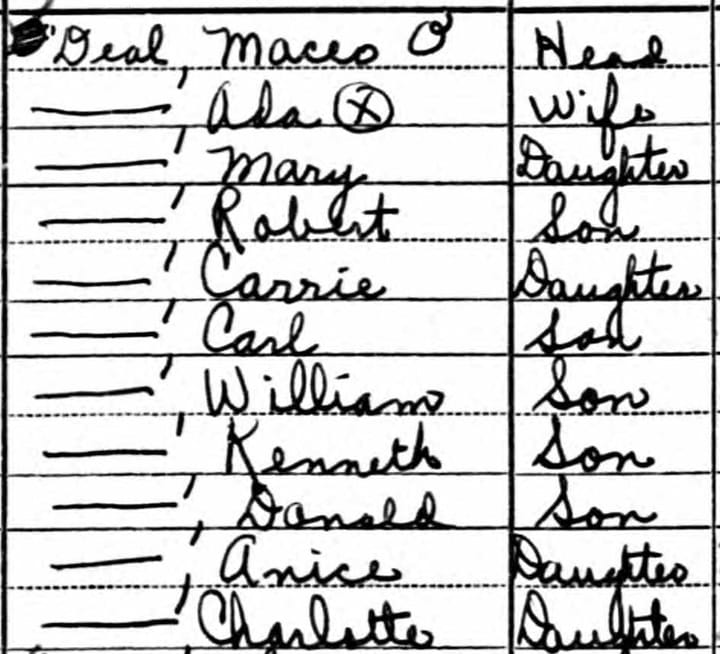 Deal, Maceo O Head
—, Ada Ⓧ Wife
—, Mary Daughter
—, Robert Son
—, Carrie Daughter
—, Carl Son
—, William Son
—, Kenneth Son
—, Donald Son
—, Anice Daughter
—, Charlotte Daughter